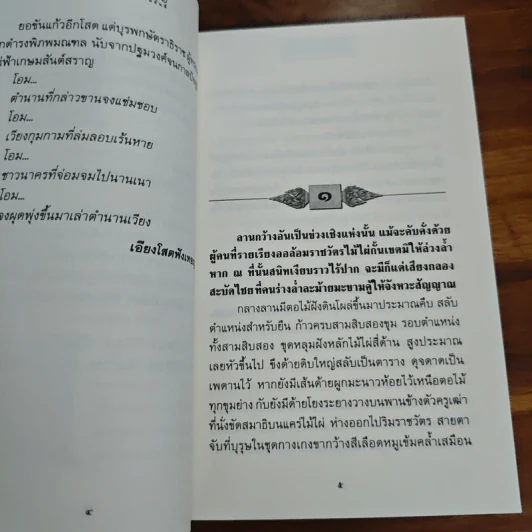 ยอชันแก้วอีกโสต แต่บุรพกษัตราธิราช
กดำรงพิภพมณฑล นับจากปฐมวงศ์จน
ฟ้าเกษมสันต์สราญ
โอม...
ตำนานที่กล่าวขานจงแซ่มซอบ
โอม...
เวียงกุมกามที่ล่มลอบเร้นหาย
โอม...
ชาวนาครที่จ่อมจมไปนานเนา
โอม...
จงผุดพุ่งขึ้นมาเล่าตำนานเวียง
เอียงโสตฟัง
๔
๑
ลานกว้างอันเป็นข่วงเชิงแห่งนั้น แม้จะคับคั่งด้วย
ผู้คนที่รายเรียงออล้อมราชวัตรไม้ไผ่กั้นเขตมิให้ล่วงล้ำ
หาก ณ ที่นั้นสนิทเงียบราวไร้ปาก จะมีก็แต่เสียงกลอง
สะบัดไชยที่คนร่างล่ำละม้ายมะขามคู้ให้จังหวะสัญญาณ
กลางลานมีตอไม้ฝังดินโผล่ขึ้นมาประมาณคืบ สลับ
ตำแหน่งสำหรับยืน ก้าวครบสามสิบสองขุม รอบตำแหน่ง
ทั้งสามสิบสอง ขุดหลุมฝังหลักไม้ไผ่สี่ด้าน สูงประมาณ
เลยหัวขึ้นไป ขึงด้ายดิบใหญ่สลับเป็นตาราง ดุจดาดเป็น
เพดานไว้ หากยังมีเส้นด้ายผูกมะนาวห้อยไว้เหนือตอไม้
ทุกขุมย่าง กับยังมีด้ายโยงระยางวางบนพานข้างตัวครูเฒ่า
ที่นั่งขัดสมาธิบนแคร่ไม้ไผ่ ห่างออกไปริมราชวัตร สายตา
จับที่บุรุษในชุดกางเกงขากว้างสีเลือดหมูเข้มคล้ำเสมือน
๕